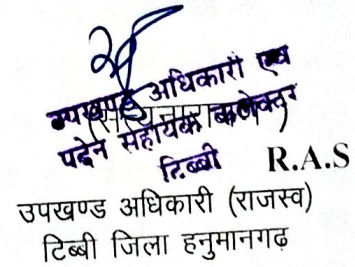 उपखण्ड अधिकारी एवं
पदेन सहायक कलेक्टर
टिब्बी
R.A.S
उपखण्ड अधिकारी (राजस्व)
टिब्बी जिला हनुमानगढ़